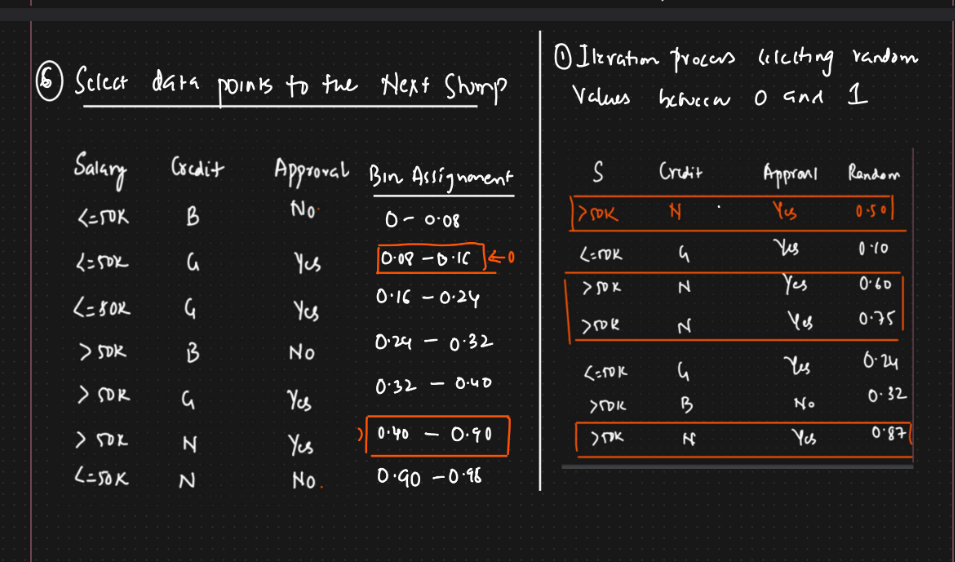 ⑥ Select data points to the Next Stump
Salary Credit Approval Bin Assignment
<=50K B No 0 - 0.08
<=50K G Yes 0.08 - 0.16 ←
<=50K G Yes 0.16 - 0.24
>50K B NO 0.24 - 0.32
>50K G Yes 0.32 - 0.40
>50K N Yes 0.40 - 0.90
<=50K N No. 0.90 - 0.98
① Iteration process selecting random
Values between 0 and 1
S Credit Approval Random
>50K N Yes 0.50
<=50K G Yes 0.10
>50K N Yes 0.60
>50K N Yes 0.75
<=50K G Yes 0.24
>50K B No 0.32
>50K N Yes 0.87